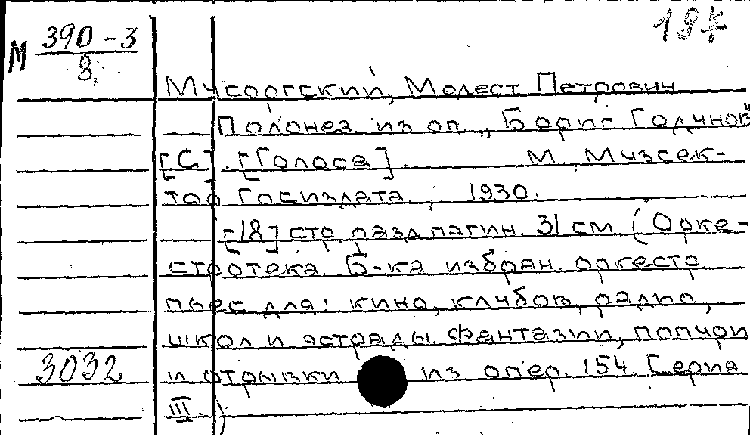 187
М 390-3
8
Мусоргский, Модест Петрович
Полонез из оп. „Борис Годунов"
[С]. [Голоса] М. Музсек-
тор Госиздата, 1930.
[18] стр. разд. пагин. 31 см (Орке-
стротека. Б-ка избран. оркестр.
пьес для: кино, клубов, радио,
школ и эстрады. Фантазии, попурри
3032 и отрывки из опер. 154 Серия
III.)